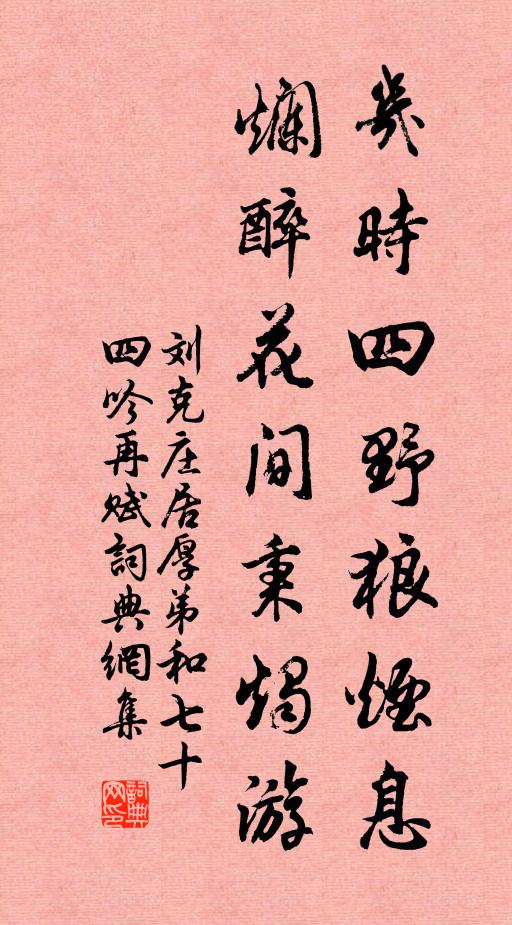 幾時四野狼煙息
爛醉花間秉燭游
刘克庄居厚弟和七十
四吟再赋詞典網集
詞典網印